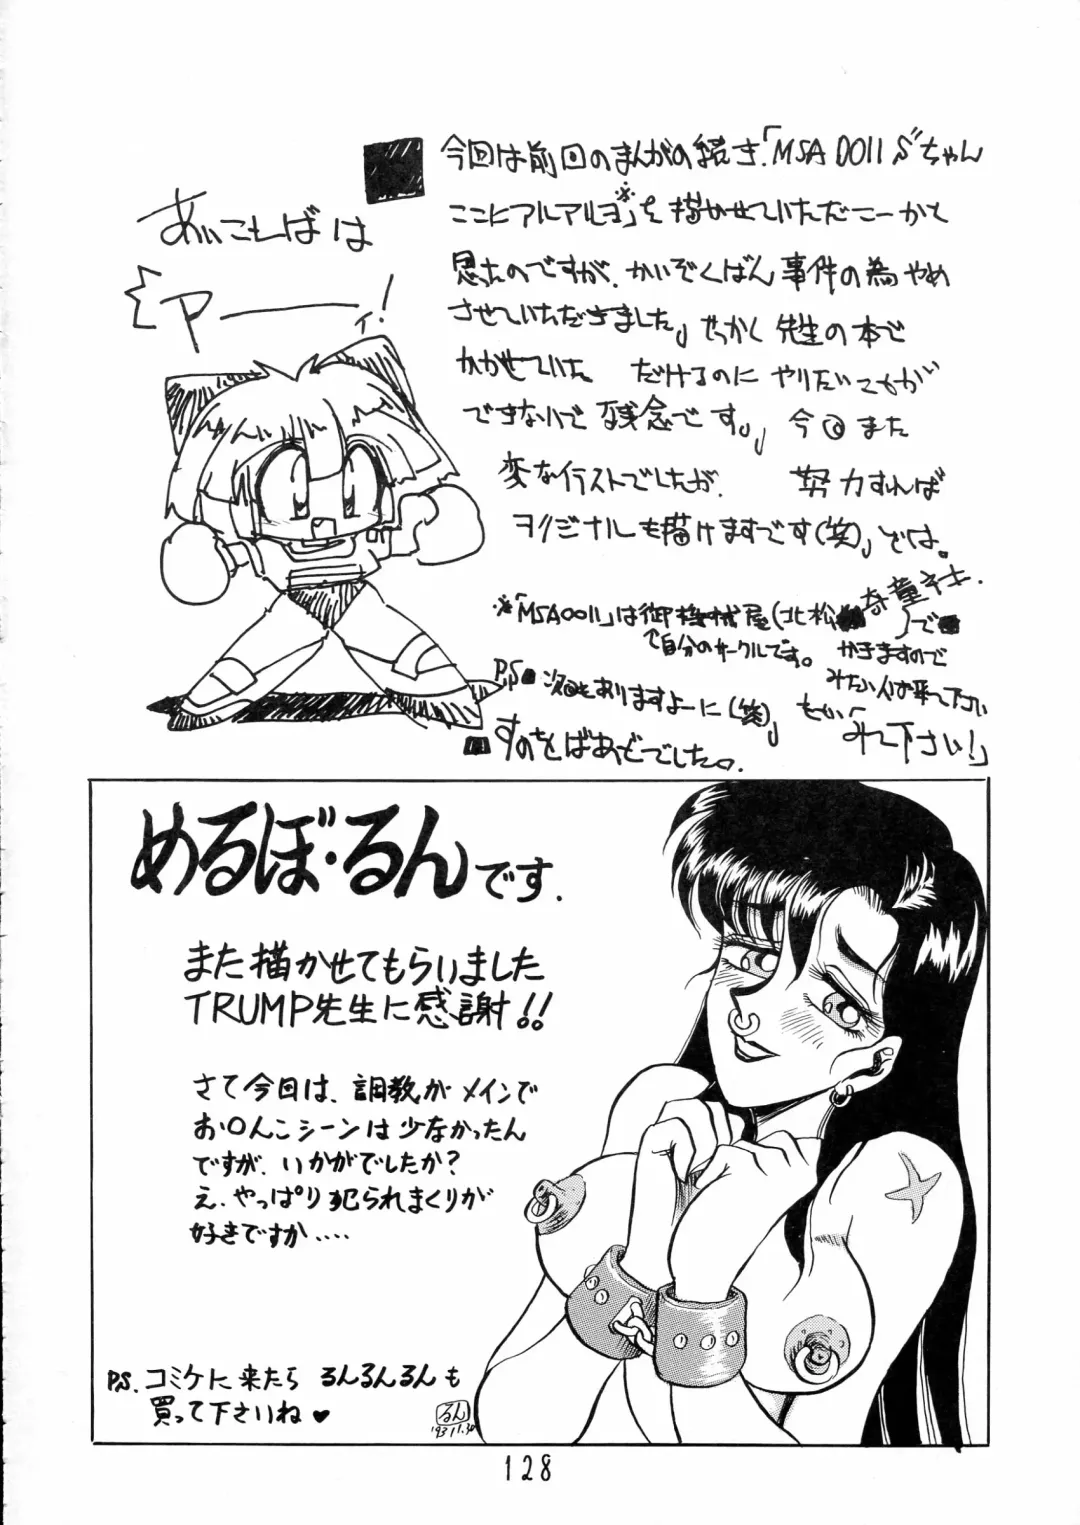 今回は前回のまんがの続き、「MSA 0011 S"ちゃん
ここにアルアルヨ※」を描かせていただこーかと
思ったのですが、かいぞくばん事件の為やめ
させていただきました。」せっかく先生の本で
かかせていた だけるのに やりだいてかが
できないで 残念です。」 今回また
変なイラストでしたが、 努力すれば
オリジナルも描けますです(笑)」では。
※「MSA0011」は御機械屋(北松 )で
自分のサークルです。 かきますので
みたい人は来て下さい
P.S 次回もありますよーに(笑)」
みて下さい!」
すのをばあどでした。
ア――ィ!
めるぼ・るんです.
また描かせてもらいました
TRUMP先生に感謝!!
さて今回は、調教がメインで
お〇んこシーンは少なかったん
ですが、いかがでしたか?
え、やっぱり犯られまくりが
好きですか‥‥
P.S. コミケに来たら るんるんるんも
買って下さいね♥
るん
'93.11.30
128